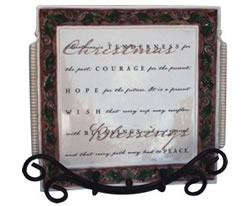 Christmas
for
the past: COURAGE for the present
HOPE for the future. It is a
WISH that every cup may overflow
with Blessings
and that every path may lead to PEACE.